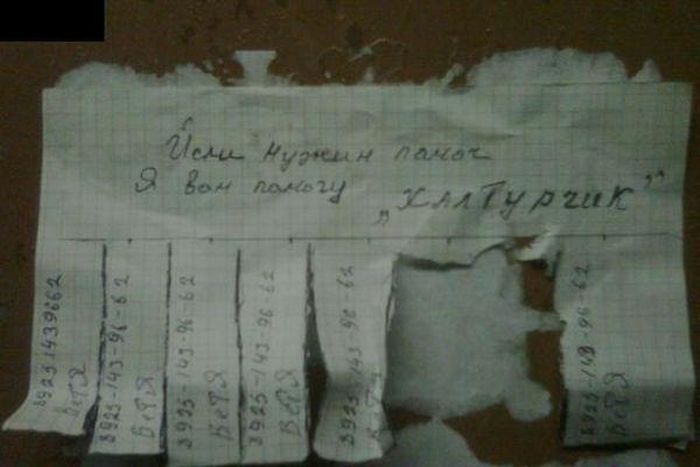 Исли нужин памоч
Я вам памогу „ХАЛТУРЧИК”
89251439662
ВЕТЯ
8925-143-96-62
ВЕТЯ
8925-143-96-62
ВЕТЯ
8925-143-96-62
ВЕТЯ
8925-143-96-62
8925-143-96-62
ВЕТЯ